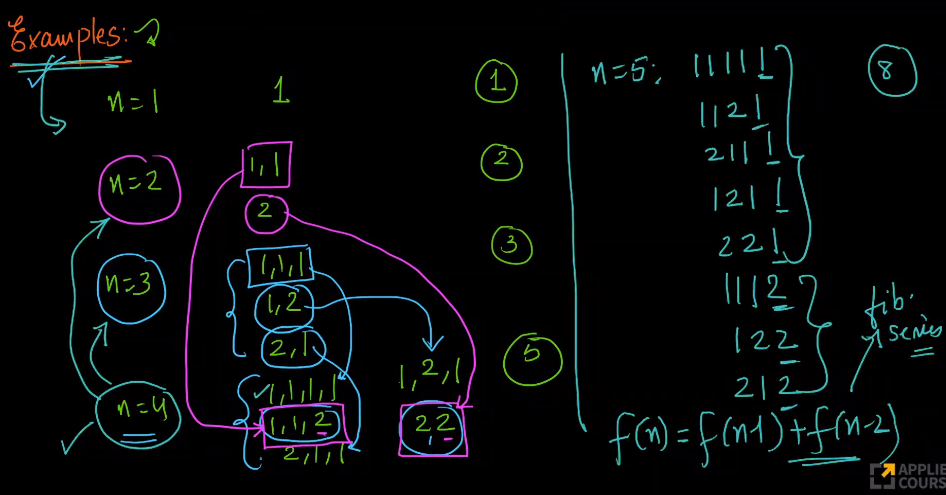 Examples:
n=1 1 1
n=2 1,1 2
2
n=3 1,1,1 3
1,2
2,1
n=4 1,1,1,1 1,2,1 5
1,1,2 2,2
2,1,1
n=5: 11111 8
1121
2111
1211
221
1112
122
212
fib.
series
f(n) = f(n-1) + f(n-2)
APPLIE
COURS